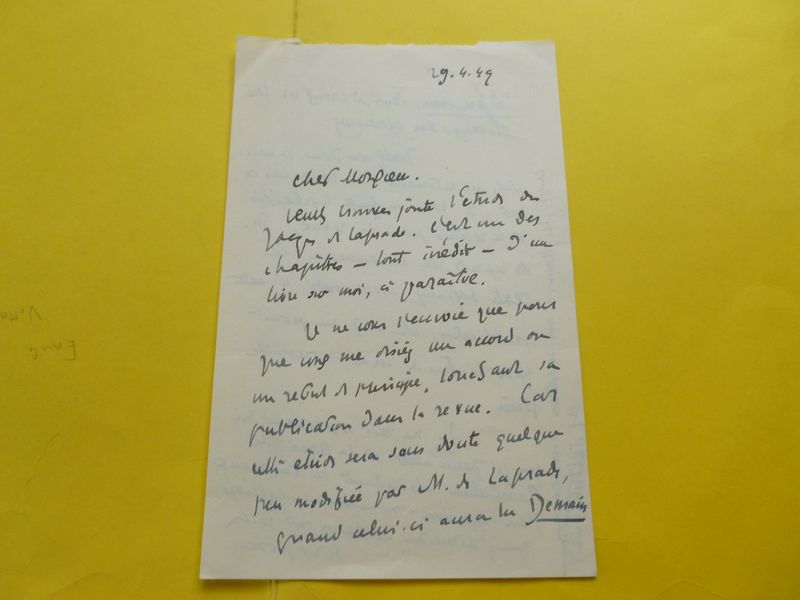 29.4.49
Cher
trouver jointe l'étude de
Jacques de Laprade. C'est un des
chapitres — tout inédit — d'un
livre sur moi, à paraître.
Je ne vous l'envoie que pour
que vous me disiez un accord ou
un refus de principe, touchant sa
publication dans la revue. Car
cette étude sera sans doute quelque
peu modifiée par M. de Laprade,
quand celui-ci aura lu Demain